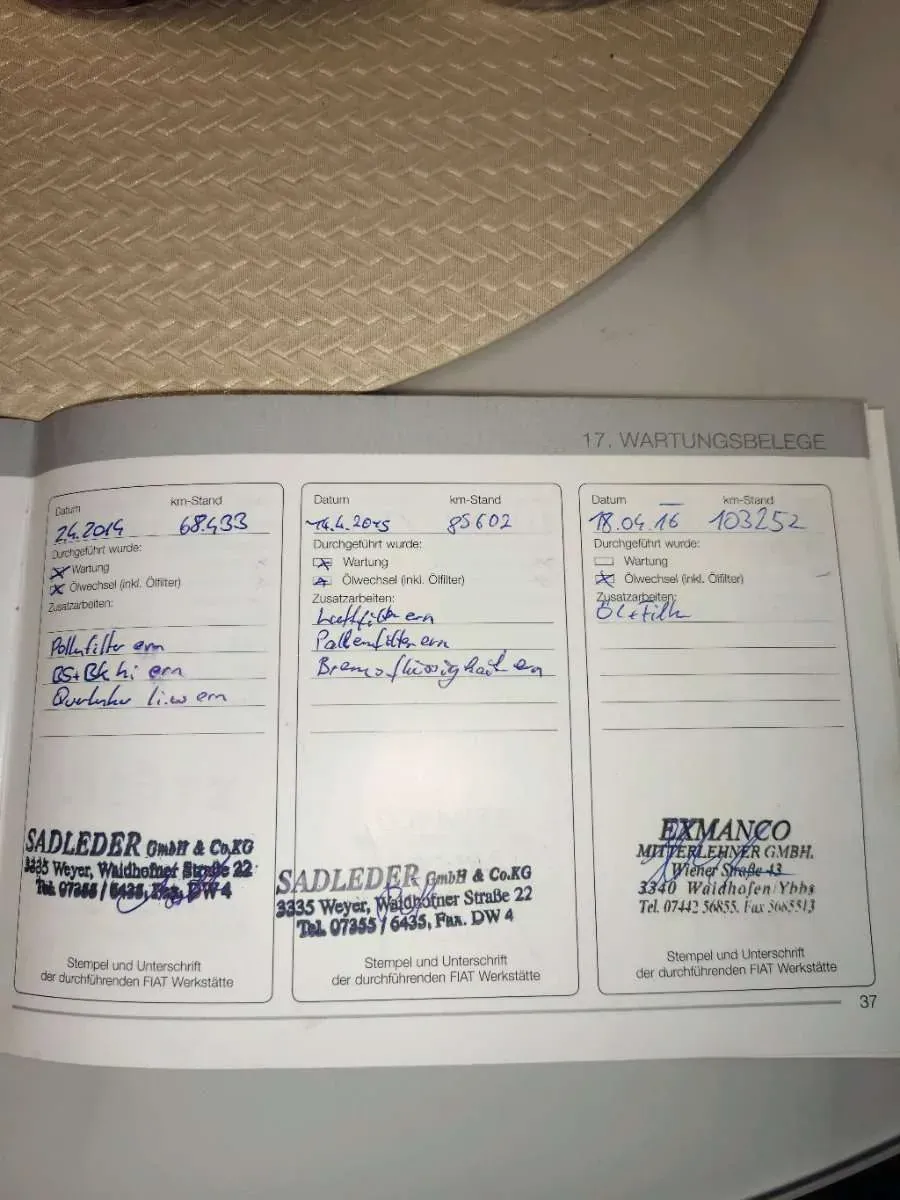 17. WARTUNGSBELEGE
Datum km-Stand
2.4.2014 68.433
Durchgeführt wurde:
Wartung
Ölwechsel (inkl. Ölfilter)
Zusatzarbeiten:
Pollnfilter ern
BS+Bk hi ern
Querlenker li.w ern
SADLEDER GmbH & Co.KG
3335 Weyer, Waidhofner Straße 22
Tel. 07355 / 6435, Fax. DW 4
Stempel und Unterschrift
der durchführenden FIAT Werkstätte
Datum km-Stand
14.4.2015 85602
Durchgeführt wurde:
Wartung
Ölwechsel (inkl. Ölfilter)
Zusatzarbeiten:
Luftfilter ern
Pollenfilter ern
Bremsflüssigkeit ern
SADLEDER GmbH & Co.KG
3335 Weyer, Waidhofner Straße 22
Tel. 07355 / 6435, Fax. DW 4
Stempel und Unterschrift
der durchführenden FIAT Werkstätte
Datum km-Stand
18.04.16 103252
Durchgeführt wurde:
Wartung
Ölwechsel (inkl. Ölfilter)
Zusatzarbeiten:
Öl+Filt
EXMANCO
MITTERLEHNER GMBH.
Wiener Straße 43
3340 Waidhofen/Ybbs
Tel. 07442 56855. Fax 5685513
Stempel und Unterschrift
der durchführenden FIAT Werkstätte
37